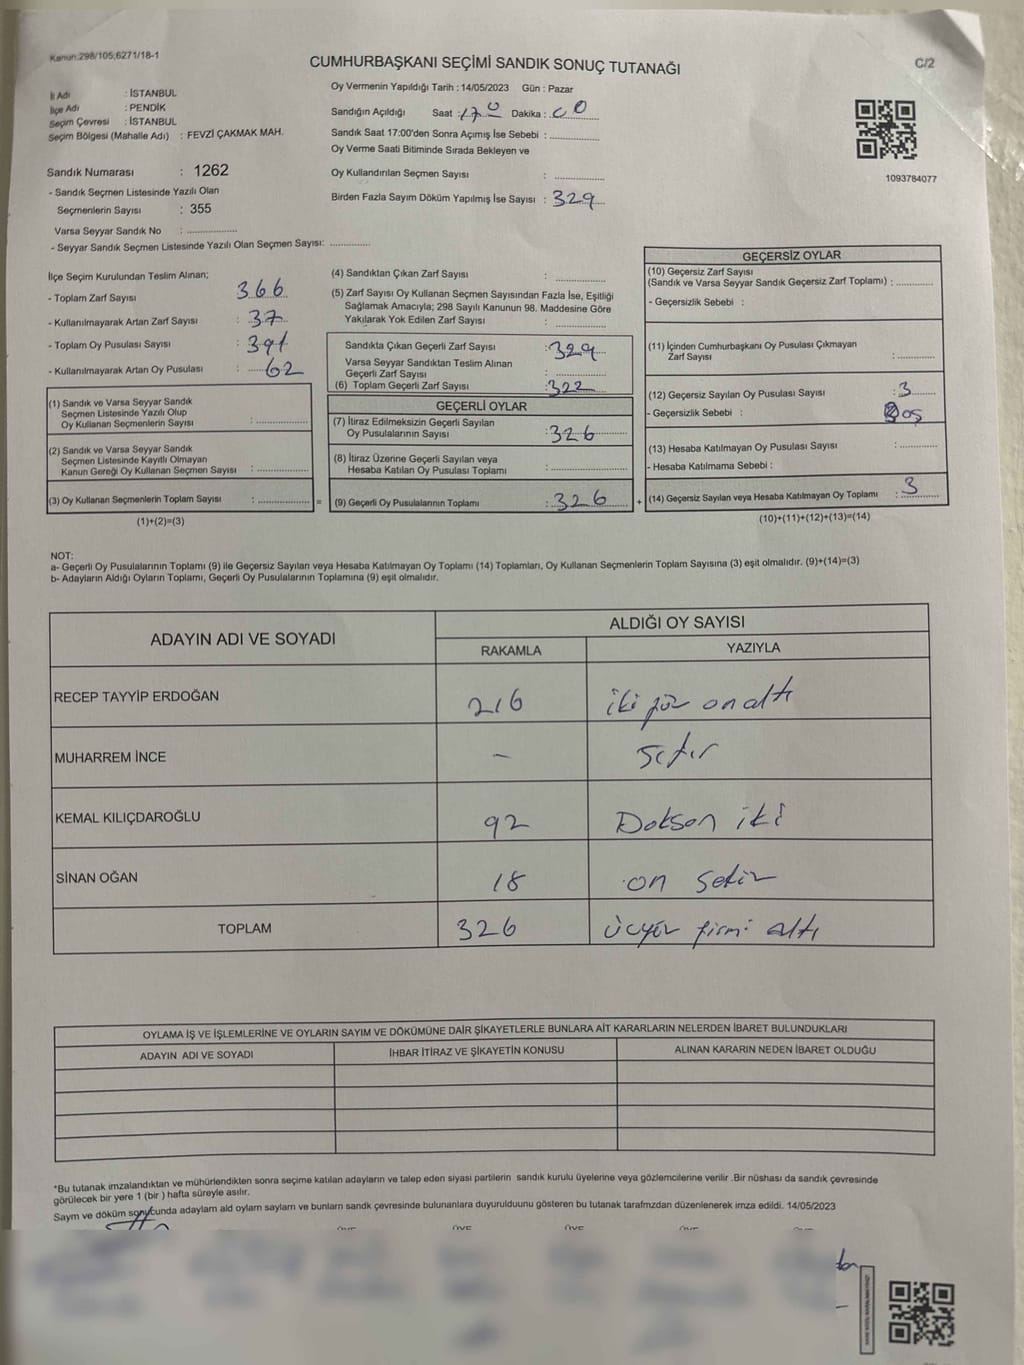 Kanun:298/105;6271/18-1
CUMHURBAŞKANI SEÇİMİ SANDIK SONUÇ TUTANAĞI
C/2
İl Adı : İSTANBUL
İlçe Adı : PENDİK
Seçim Çevresi : İSTANBUL
Seçim Bölgesi (Mahalle Adı) : FEVZİ ÇAKMAK MAH.
Sandık Numarası : 1262
- Sandık Seçmen Listesinde Yazılı Olan
Seçmenlerin Sayısı : 355
Varsa Seyyar Sandık No : ................
- Seyyar Sandık Seçmen Listesinde Yazılı Olan Seçmen Sayısı: ............
Oy Vermenin Yapıldığı Tarih : 14/05/2023 Gün : Pazar
Sandığın Açıldığı Saat : 17 00 Dakika : 00
Sandık Saat 17:00'den Sonra Açımış İse Sebebi : ................
Oy Verme Saati Bitiminde Sırada Bekleyen ve
Oy Kullandırılan Seçmen Sayısı : ................
Birden Fazla Sayım Döküm Yapılmış İse Sayısı : 329
1093784077
İlçe Seçim Kurulundan Teslim Alınan;
- Toplam Zarf Sayısı : 366
- Kullanılmayarak Artan Zarf Sayısı : 37
- Toplam Oy Pusulası Sayısı : 391
- Kullanılmayarak Artan Oy Pusulası : 62
(1) Sandık ve Varsa Seyyar Sandık
Seçmen Listesinde Yazılı Olup
Oy Kullanan Seçmenlerin Sayısı : ................
(2) Sandık ve Varsa Seyyar Sandık
Seçmen Listesinde Kayıtlı Olmayan
Kanun Gereği Oy Kullanan Seçmen Sayısı : ................
(3) Oy Kullanan Seçmenlerin Toplam Sayısı : ................ =
(1)+(2)=(3)
(4) Sandıktan Çıkan Zarf Sayısı : ................
(5) Zarf Sayısı Oy Kullanan Seçmen Sayısından Fazla İse, Eşitliği
Sağlamak Amacıyla; 298 Sayılı Kanunun 98. Maddesine Göre
Yakılarak Yok Edilen Zarf Sayısı : ................
Sandıkta Çıkan Geçerli Zarf Sayısı : 329
Varsa Seyyar Sandıktan Teslim Alınan
Geçerli Zarf Sayısı : ................
(6) Toplam Geçerli Zarf Sayısı : 322
GEÇERLİ OYLAR
(7) İtiraz Edilmeksizin Geçerli Sayılan
Oy Pusulalarının Sayısı : 326
(8) İtiraz Üzerine Geçerli Sayılan veya
Hesaba Katılan Oy Pusulası Toplamı : ................
(9) Geçerli Oy Pusulalarının Toplamı : 326 +
GEÇERSİZ OYLAR
(10) Geçersiz Zarf Sayısı
(Sandık ve Varsa Seyyar Sandık Geçersiz Zarf Toplamı) : ............
- Geçersizlik Sebebi :
(11) İçinden Cumhurbaşkanı Oy Pusulası Çıkmayan
Zarf Sayısı : ............
(12) Geçersiz Sayılan Oy Pusulası Sayısı : 3
- Geçersizlik Sebebi : Boş
(13) Hesaba Katılmayan Oy Pusulası Sayısı : ............
- Hesaba Katılmama Sebebi :
(14) Geçersiz Sayılan veya Hesaba Katılmayan Oy Toplamı : 3
(10)+(11)+(12)+(13)=(14)
NOT:
a- Geçerli Oy Pusulalarının Toplamı (9) ile Geçersiz Sayılan veya Hesaba Katılmayan Oy Toplamı (14) Toplamları, Oy Kullanan Seçmenlerin Toplam Sayısına (3) eşit olmalıdır. (9)+(14)=(3)
b- Adayların Aldığı Oyların Toplamı, Geçerli Oy Pusulalarının Toplamına (9) eşit olmalıdır.
ADAYIN ADI VE SOYADI
ALDIĞI OY SAYISI
RAKAMLA YAZIYLA
RECEP TAYYİP ERDOĞAN 216 iki yüz on altı
MUHARREM İNCE - sıfır
KEMAL KILIÇDAROĞLU 92 Doksan iki
SİNAN OĞAN 18 on sekiz
TOPLAM 326 üçyüz yirmi altı
OYLAMA İŞ VE İŞLEMLERİNE VE OYLARIN SAYIM VE DÖKÜMÜNE DAİR ŞİKAYETLERLE BUNLARA AİT KARARLARIN NELERDEN İBARET BULUNDUKLARI
ADAYIN ADI VE SOYADI İHBAR İTİRAZ VE ŞİKAYETİN KONUSU ALINAN KARARIN NEDEN İBARET OLDUĞU
*Bu tutanak imzalandıktan ve mühürlendikten sonra seçime katılan adayların ve talep eden siyasi partilerin sandık kurulu üyelerine veya gözlemcilerine verilir .Bir nüshası da sandık çevresinde
görülecek bir yere 1 (bir ) hafta süreyle asılır.
Sayım ve döküm sonucunda adayların ald oyların sayların ve bunların sandk çevresinde bulunanlara duyurulduunu gösteren bu tutanak tarafmzdan düzenlenerek imza edildi. 14/05/2023